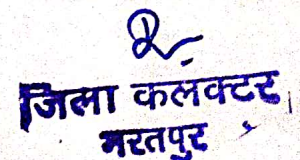 जिला कलेक्टर
भरतपुर